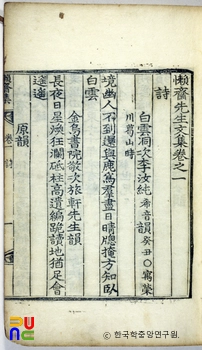 懶齋先生文集卷之一
詩
白雲洞次李汝純希音韻癸丑○寓榮
川葛山時
境幽人不到還與鹿爲羣盡日晴牕掩方知臥
白雲
金烏書院敬次旅軒先生韻
長夜日星煥狂瀾砥柱高遺編跪讀地猶足會
遙遙
原韻
懶齋集 卷一 詩
ⓒ 한국학중앙연구원.